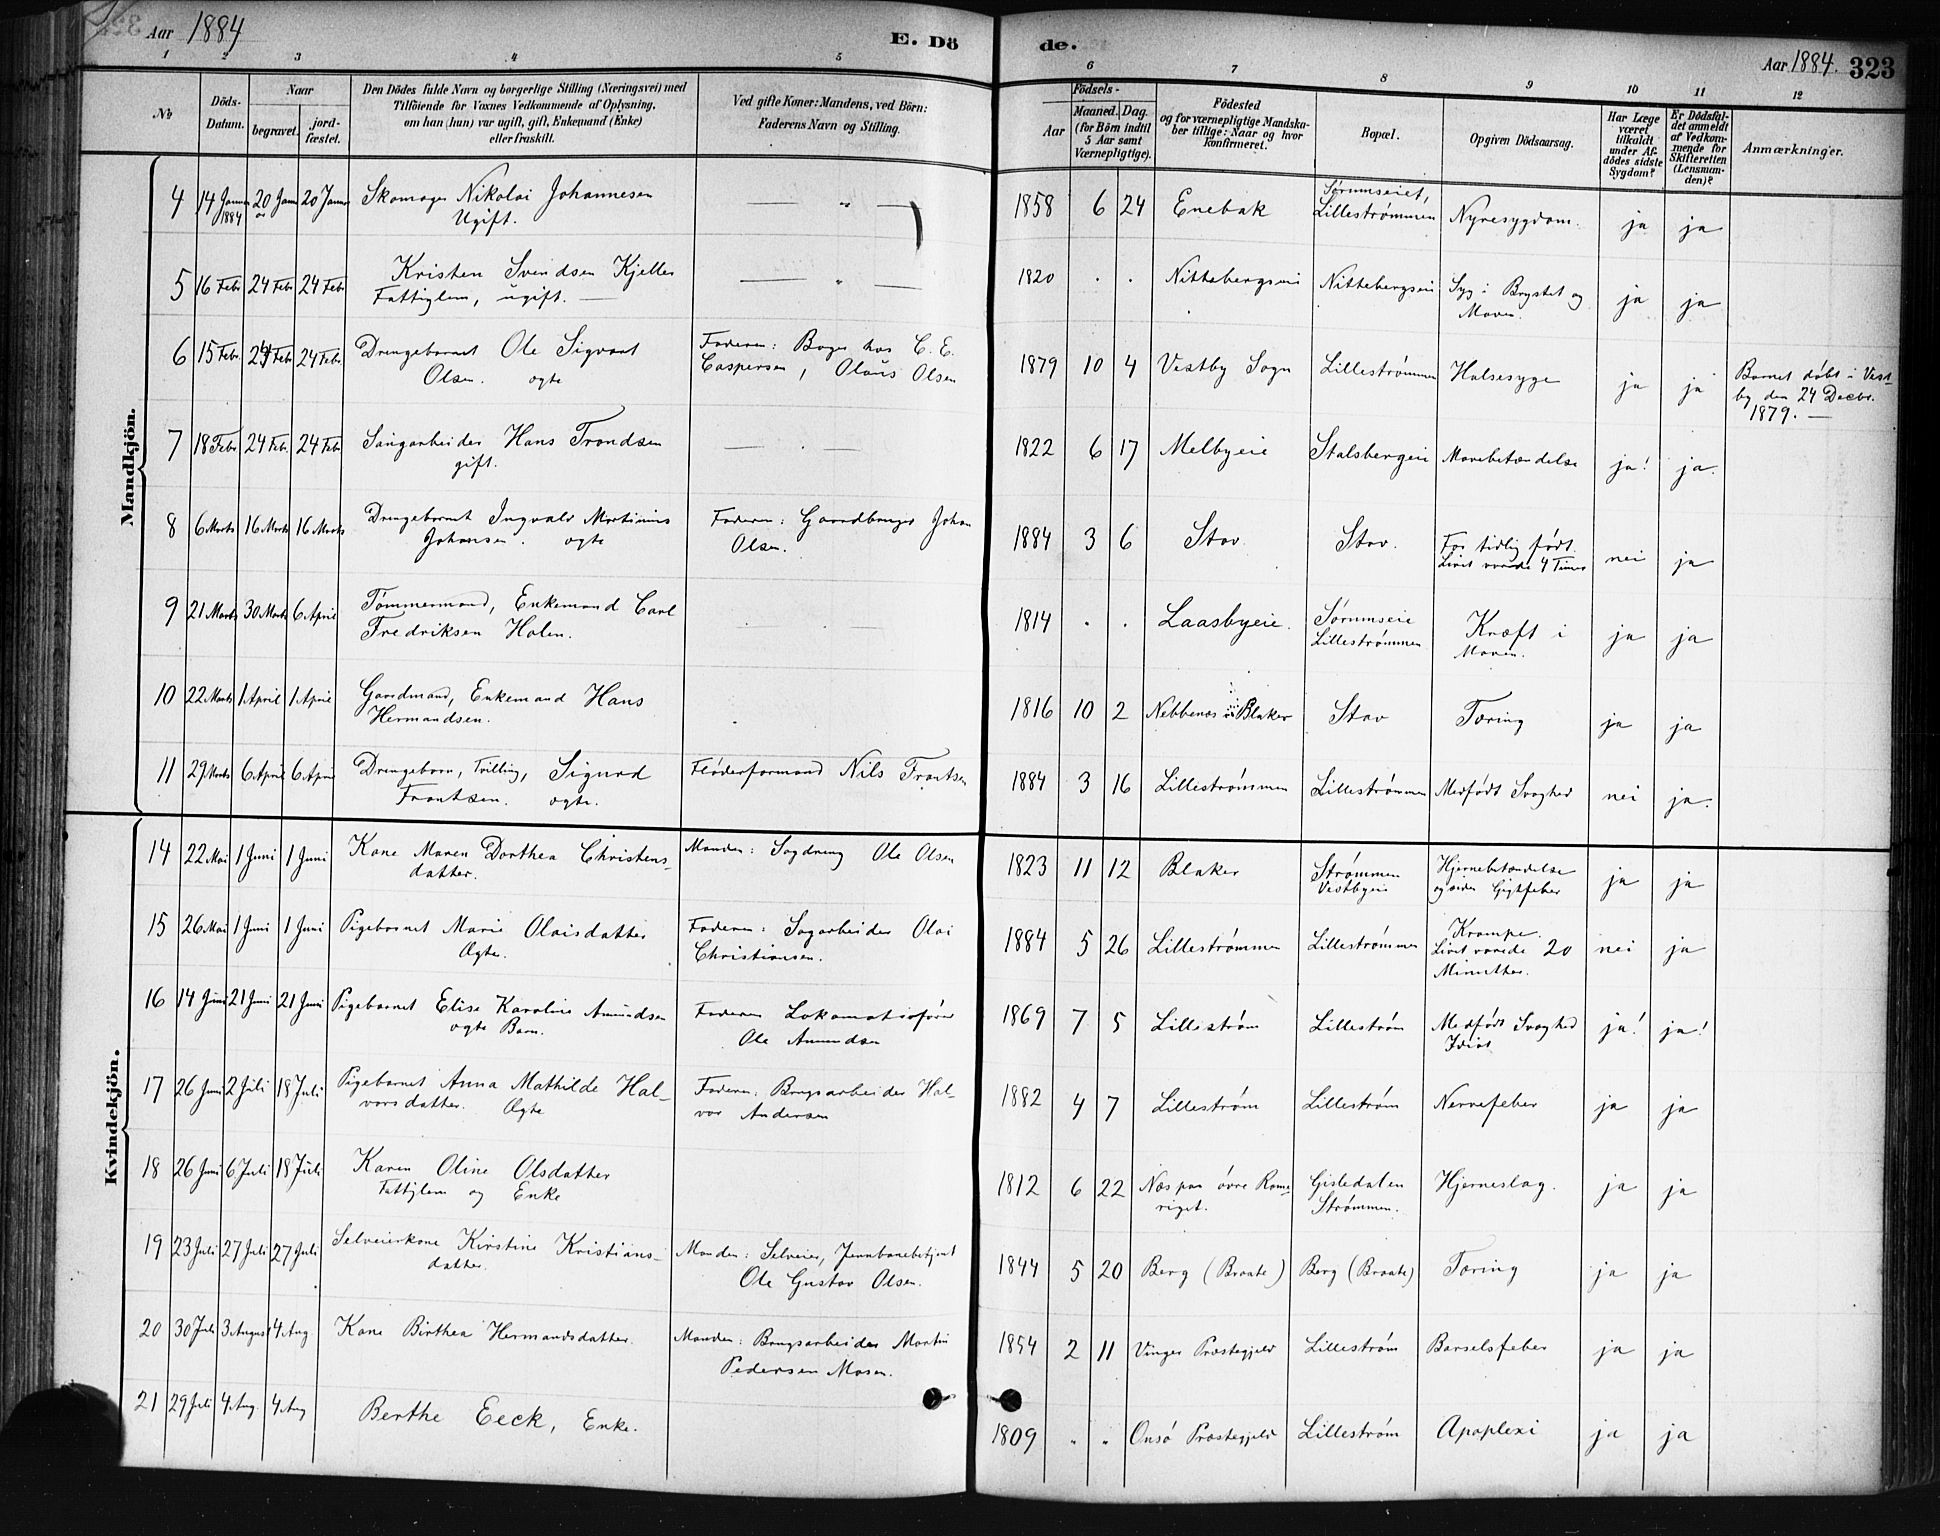 Aar 1884
E. Dö
de.
Aar 1884. 323
1 2 3 4 5 6 7 8 9 10 11 12
No
Döds-
Datum.
Naar
begravet.
jord-
fæstet.
Den Dödes fulde Navn og borgerlige Stilling (Næringsvei) med
Tilföiende for Voxnes Vedkommende af Oplysning,
om han (hun) var ugift, gift, Enkemand (Enke)
eller fraskilt.
Ved gifte Koner: Mandens, ved Börn:
Faderens Navn og Stilling.
Födsels-
Aar
Maaned. Dag.
(for Börn indtil
5 Aar samt
Værnepligtige).
Födested
og for værnepligtige Mandska-
ber tillige: Naar og hvor
konfirmeret.
Bopæl.
Opgiven Dödsaarsag.
Har Læge
været
tilkaldt
under Af-
dödes sidste
Sygdom?
Er Dödsfal-
det anmeldt
af Vedkom-
mende for
Skifteretten
(Lensman-
den)?
Anmærkninger.
Mandkjön.
4 14 Januar 1884 20 Janu 20 Janu Skomager Nikolai Johannesen
Ugift.
1858 6 24 Enebak Sørumseiet,
Lillestrømmen Nyresygdom. ja ja
5 16 Febr 24 Febr 24 Febr Kristen Svendsen Kjeller
Fattiglem, ugift.
1820 . . Nittebergseie Nittebergseie Syg i Brystet og
Maven. ja ja
6 15 Febr. 24 Febr 24 Febr. Drengebarnet Ole Sigvart
Olsen. ægte
Faderen: Bager hos C. E.
Caspersen, Olaus Olsen
1879 10 4 Vestby Sogn Lillestrømmen Halsesyge ja ja
Barnet døbt i Vest-
by den 24 Decbr.
1879.
7 18 Febr 24 Febr. 24 Febr Saugarbeider Hans Trondsen
gift.
1822 6 17 Melbyeie Stalsbergeie Mavebetændelse ja! ja.
8 6 Marts 16 Marts 16 Marts Drengebarnet Ingvald Martinius
Johansen. ægte
Faderen: Gaardbruger Johan
Olsen.
1884 3 6 Stav Stav. For tidlig født.
Livet varede 4 Timer nei ja
9 21 Marts 30 Marts 6 April Tømmermand, Enkemand Carl
Fredriksen Holen.
1814 . . Laasbyeie. Sørumseie
Lillestrømmen Kræft i
Maven. ja ja
10 22 Marts 1 April 1 April Gaardmand, Enkemand Hans
Hermandsen.
1816 10 2 Nebbenæs i Blaker Stav Tæring ja ja
11 29 Marts 6 April 6 April Drengebarn, Tvilling, Sigurd
Frantsen. ægte.
Fløderformand Nils Frantsen
1884 3 16 Lillestrømmen Lillestrømmen Medfødt Svaghed nei ja.
Kvindekjön.
14 22 Mai 1 Juni 1 Juni Kone Maren Dorthea Christens-
datter.
Manden: Sagdreng Ole Olsen
1823 11 12 Blaker Strømmen
Vestbyeie Hjernebetændelse
og siden Gigtfeber ja ja
15 26 Mai 1 Juni 1 Juni Pigebarnet Marie Olaisdatter
Ægte.
Faderen: Sagarbeider Olai
Christiansen.
1884 5 26 Lillestrømmen Lillestrømmen Krampe.
Livet varede 20
Minutter. nei ja
16 14 Juni 21 Juni 21 Juni Pigebarnet Elise Karoline Amundsen
ægte Barn.
Faderen Lokomotivfører
Ole Amundsen
1869 7 5 Lillestrøm Lillestrøm Medfødt Svaghed
Idiot ja! ja!
17 26 Juni 2 Juli 18 Juli Pigebarnet Anna Mathilde Hal-
vorsdatter. Ægte
Faderen: Brugsarbeider Hal-
vor Andersen
1882 4 7 Lillestrøm Lillestrøm Nervefeber ja ja
18 26 Juni 6 Juli 18 Juli Karen Oline Olsdatter
Fattiglem og Enke
1812 6 22 Næs paa øvre Rome-
riget. Gisledalen
Strømmen. Hjerneslag. ja ja
19 23 Juli 27 Juli 27 Juli Selveierkone Kirstine Kristians-
datter.
Manden: Selveier, Jernbanebetjent
Ole Gustav Olsen.
1844 5 20 Berg (Braate) Berg (Braate) Tæring ja ja
20 30 Juli 3 August 4 Aug Kone Birthea Hermandsdatter.
Manden: Brugsarbeider Martin
Pedersen Mosen.
1854 2 11 Vinger Præstegjeld Lillestrøm Barselsfeber ja ja
21 29 Juli 4 Aug. 4 Aug Berthe Eeck, Enke.
1809 " " Onsø Præstegjeld Lillestrøm Apoplexi ja ja